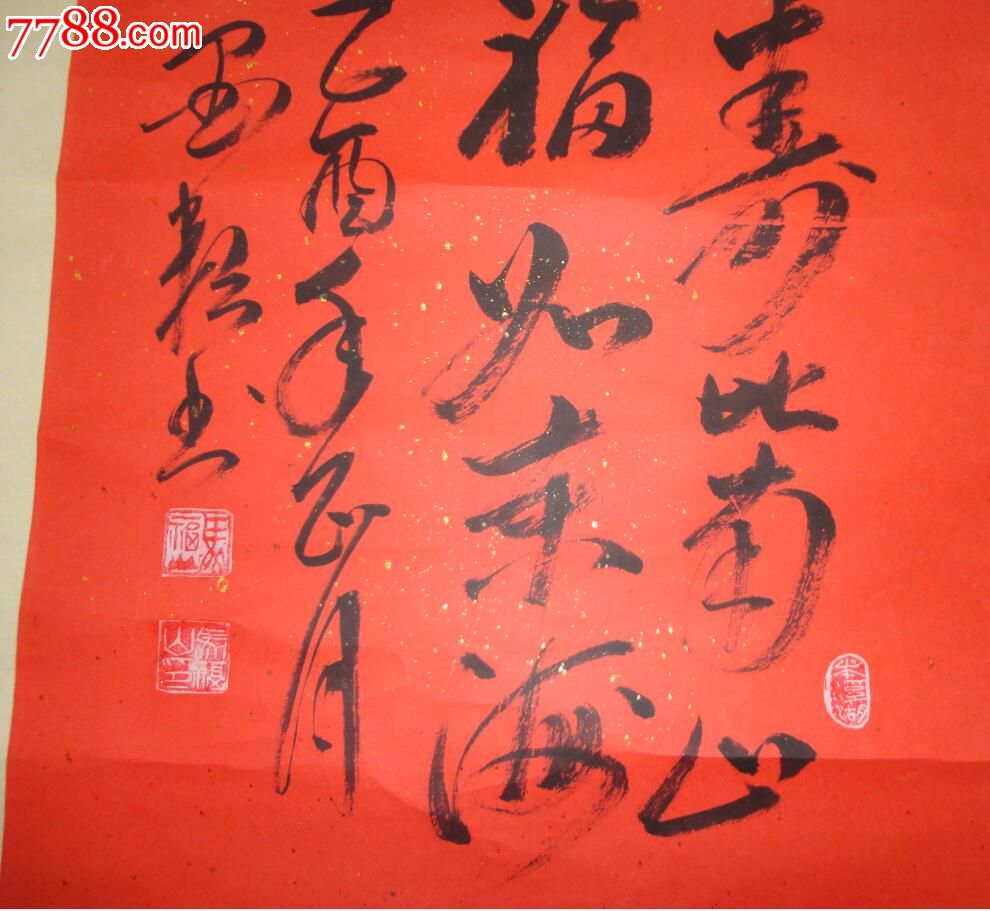 7788.com
寿比南山
福如东海
乙酉年正月
书
本溪湖